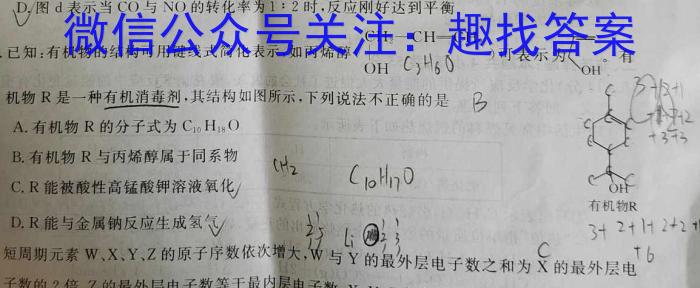 D. 图 d 表示当 CO 与 NO 的转化率为 1∶2 时,反应刚好达到平衡
微信公众号关注:趣找答案
.已知:有机物的结构可用键线式简化表示,如丙烯醇 CH—CH
OH C3H6O 可表示为 OH 。有
机物 R 是一种有机消毒剂,其结构如图所示,下列说法不正确的是 B
3+3+1
A. 有机物 R 的分子式为 C₁₀H₁₈O
+3+3
B. 有机物 R 与丙烯醇属于同系物
CH2
C10H17O
C. R 能被酸性高锰酸钾溶液氧化
OH
有机物R
D. R 能与金属钠反应生成氢气
3+2+1+2+2+
+6
C
短周期元素 W、X、Y、Z 的原子序数依次增大,W 与 Y 的最外层电子数之和为 X 的最外层电
子数的 2 倍,Z 的最外层电子数等于最内层电子数